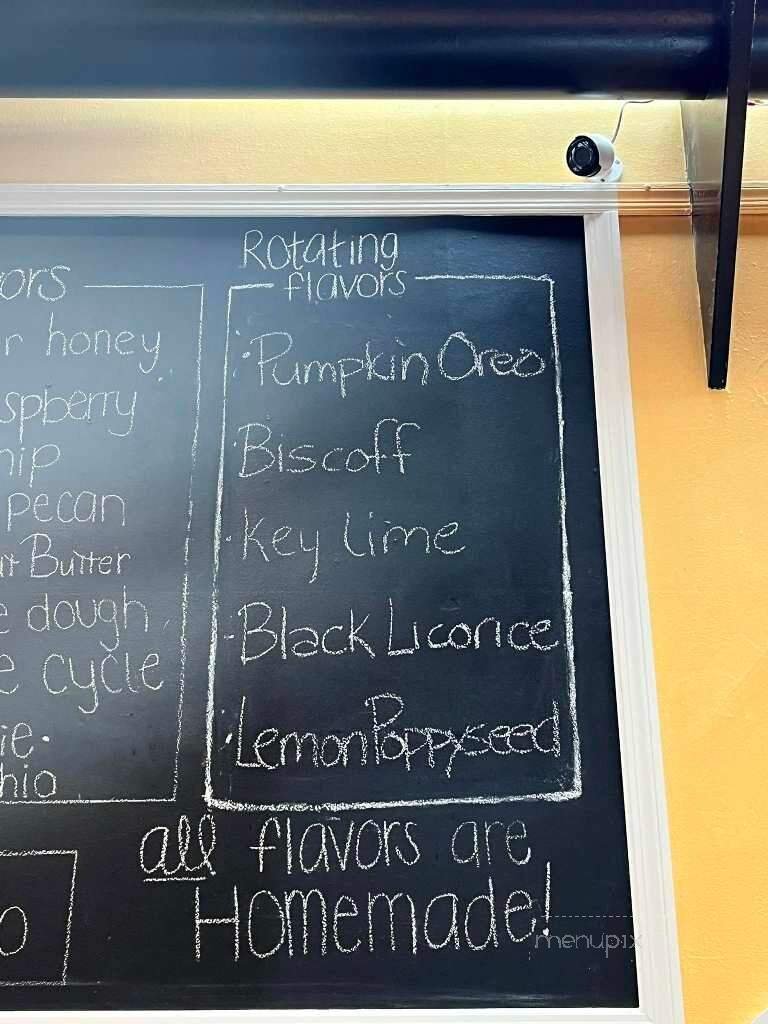 ors
r honey
spberry
hip
pecan
Butter
e dough
e cycle
ie.
hio
o
Rotating
flavors
Pumpkin Oreo
Biscoff
Key lime
Black Licorice
Lemon Poppyseed
all flavors are
Homemade!
menupix